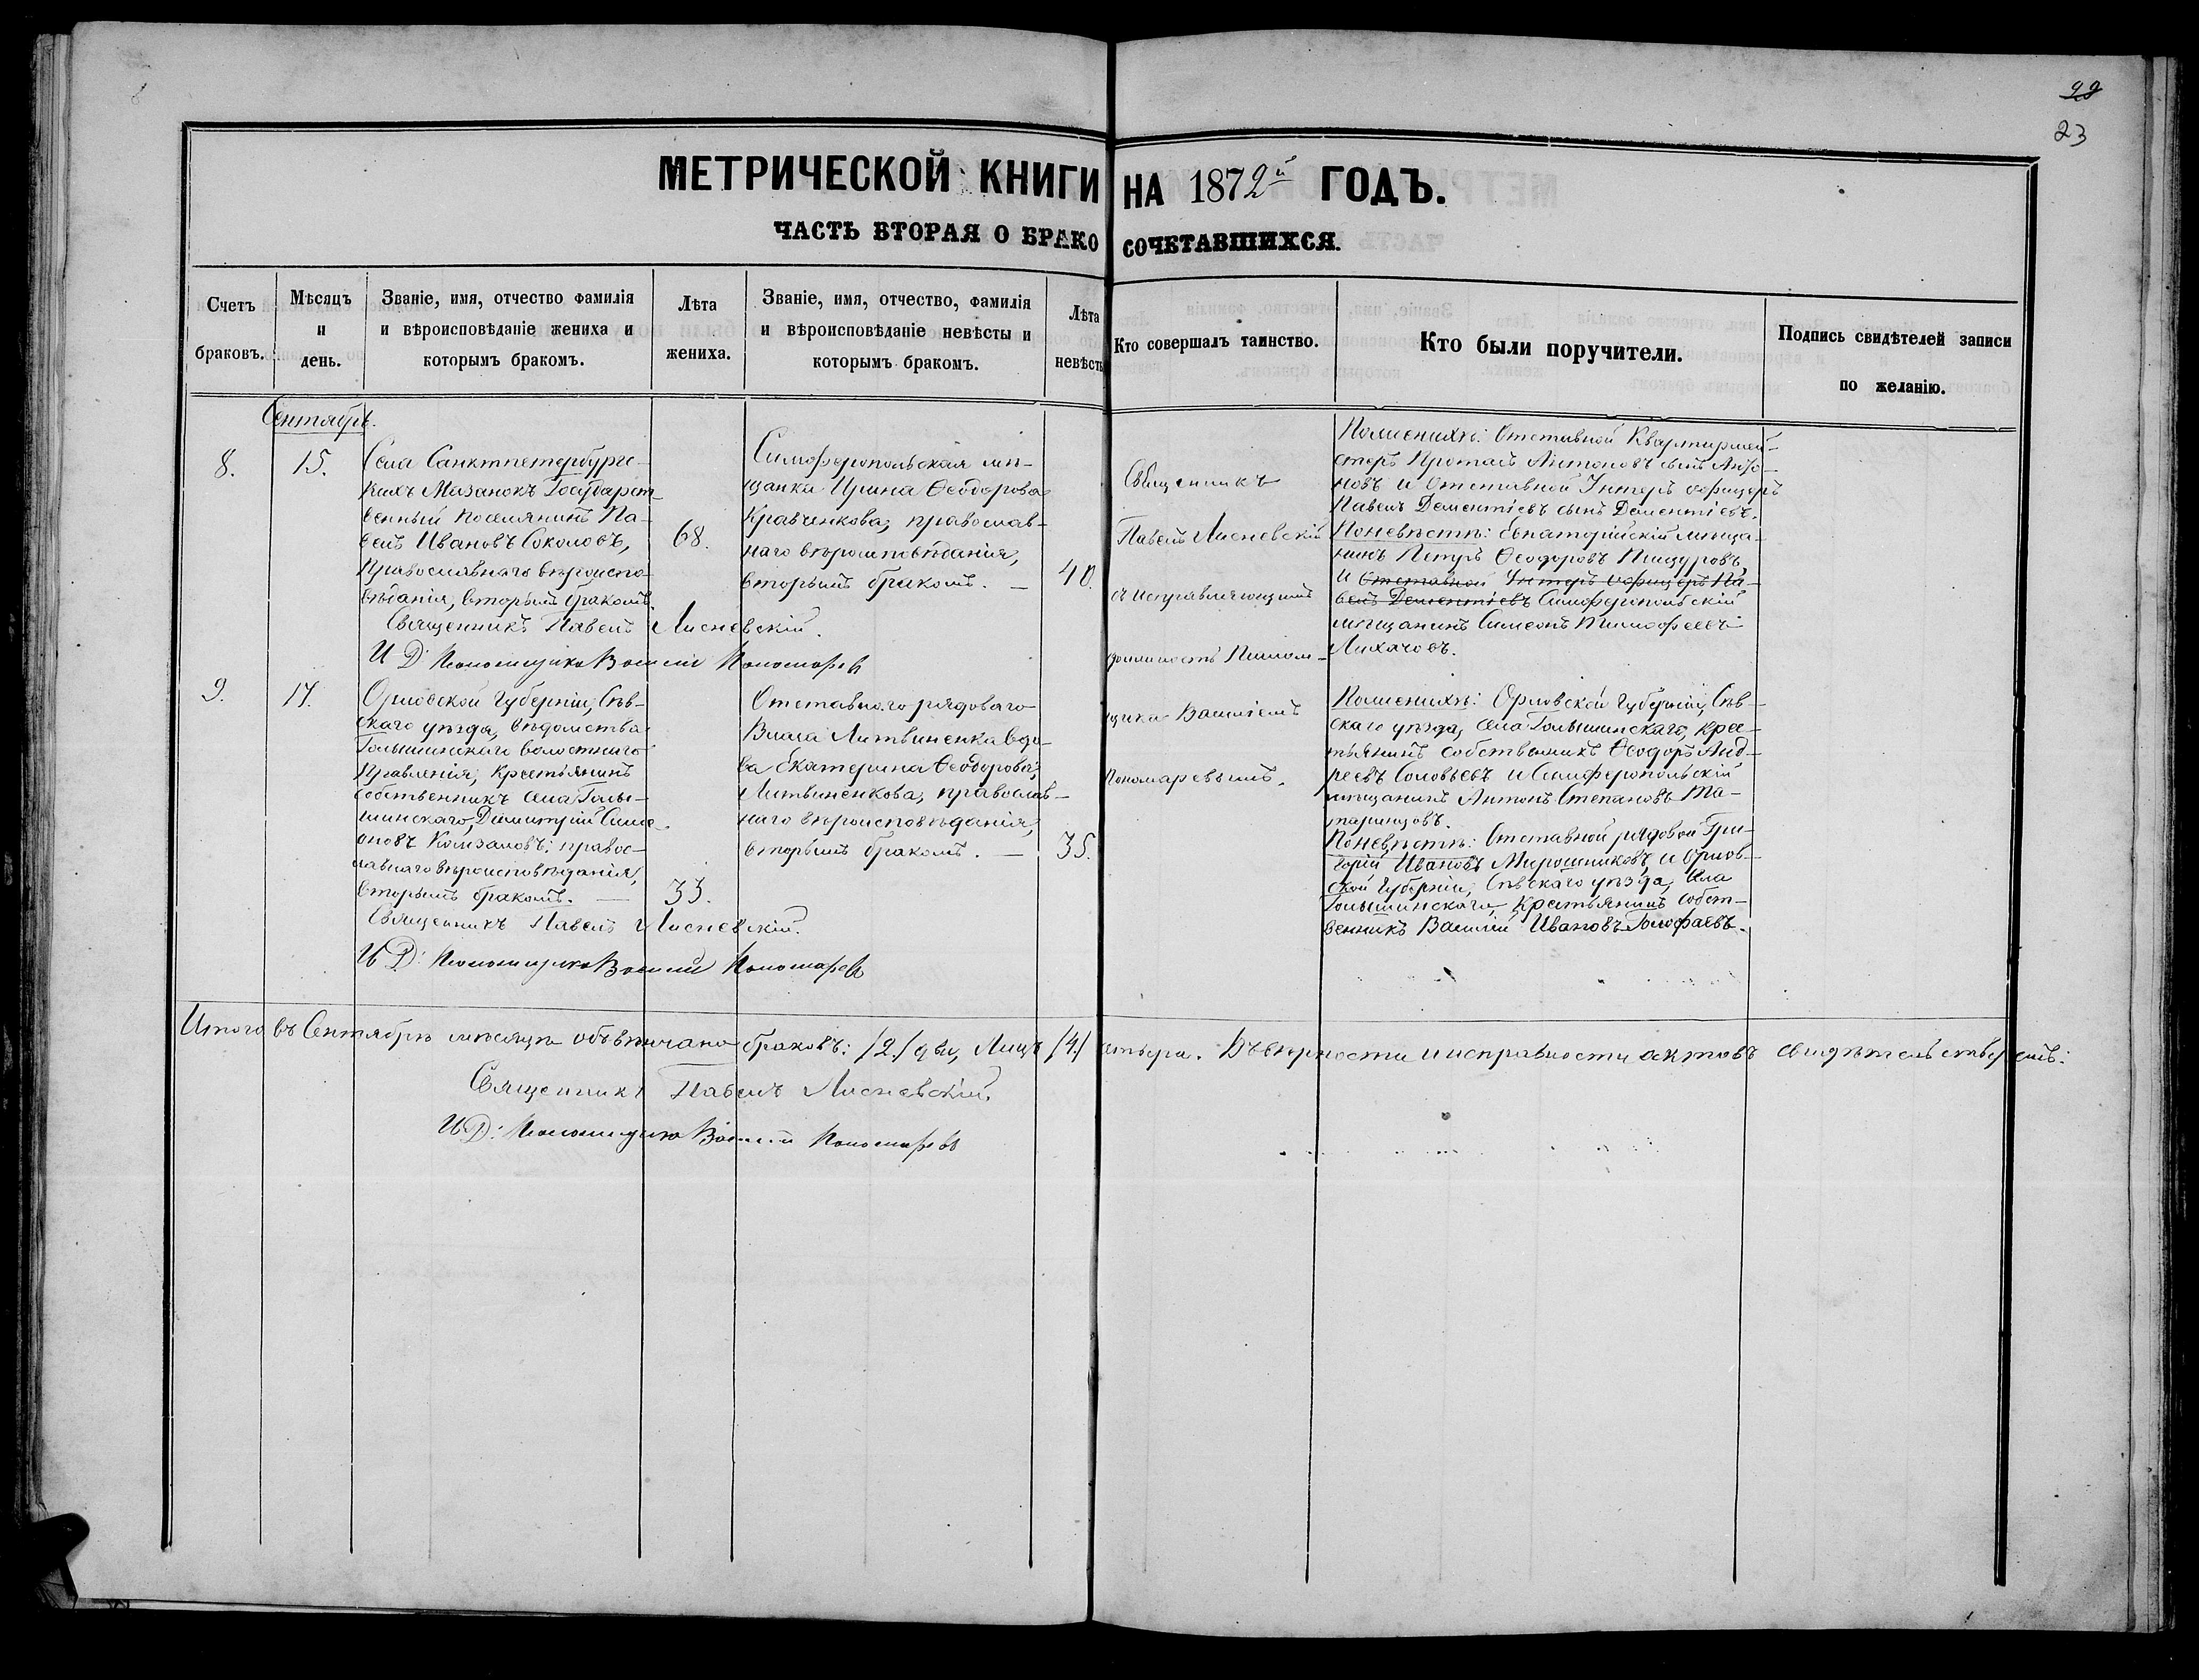 22
23
МЕТРИЧЕСКОЙ КНИГИ НА 1872й ГОДЪ.
ЧАСТЬ ВТОРАЯ О БРАКОСОЧЕТАВШИХСЯ.
Счетъ браковъ.
Мѣсяцъ и день.
Званіе, имя, отчество фамилія
и вѣроисповѣданіе жениха и
которымъ бракомъ.
Лѣта жениха.
Званіе, имя, отчество, фамилія
и вѣроисповѣданіе невѣсты и
которымъ бракомъ.
Лѣта невѣсты
Кто совершалъ таинство.
Кто были поручители.
Подпись свидѣтелей записи
по желанію.
Сентябрь.
8.
15.
Села Санктпетербургс-
кихъ Мазанокъ Государст-
венный поселянинъ Па-
велъ Ивановъ Соколовъ,
Православнаго вѣроиспо-
вѣданія, вторымъ бракомъ.
68.
Симферопольская мѣ-
щанка Ирина Ѳеодорова
Кравченкова, православ-
наго вѣроисповѣданія,
вторымъ бракомъ. —
40.
Священникъ
Павелъ Лисневскій
съ исправляющимъ
должность Псалом-
щика Василіемъ
Пономаревымъ.
По женихѣ: Отставной Квартирмей-
стеръ Протасъ Антоновъ сынъ Анто-
новъ и Отставной Унтеръ офицеръ
Павелъ Дементіевъ сынъ Дементіевъ.
По невѣстѣ: Евпаторійскій мѣща-
нинъ Петръ Ѳеодоровъ Пищуровъ,
и Отставной Унтеръ офицеръ Па-
велъ Дементіевъ Симферопольскій
мѣщанинъ Симеонъ Тимофеевъ
Лихачовъ.
Священникъ Павелъ Лисневскій.
И Д: Псаломщика Василій Пономаревъ
9.
17.
Орловской Губерніи, Сѣв-
скаго уѣзда, вѣдомства
Голышинскаго волостнаго
Правленія, Крестьянинъ
собственникъ села Голы-
шинскаго, Димитрій Симе-
оновъ Колзановъ: правос-
лавнаго вѣроисповѣданія,
вторымъ бракомъ. —
33.
Отставнаго рядоваго
Власа Литвиненка вдо-
ва Екатерина Ѳеодорова
Литвиненкова, православ-
наго вѣроисповѣданія,
вторымъ бракомъ. —
35.
По женихѣ: Орловской Губерніи, Сѣв-
скаго уѣзда, села Голышинскаго, Крес-
тьянинъ собственникъ Ѳеодоръ Анд-
реевъ Соловьевъ и Симферопольскій
мѣщанинъ Антонъ Степановъ Та-
таринцовъ.
По невѣстѣ: Отставной рядовой Гри-
горій Ивановъ Мирошниковъ, и Орлов-
ской Губерніи, Сѣвскаго уѣзда, села
Голышинскаго, Крестьянинъ собст-
венникъ Василій Ивановъ Голофаевъ.
Священникъ Павелъ Лисневскій.
И Д: Псаломщика Василій Пономаревъ
Итого въ Сентябрѣ мѣсяцѣ обвѣнчано браковъ: /2./ два, Лицъ /4./ четверо. Въ вѣрности и исправности актовъ свидѣтельствуемъ:
Священникъ Павелъ Лисневскій.
И Д: Псаломщика Василій Пономаревъ